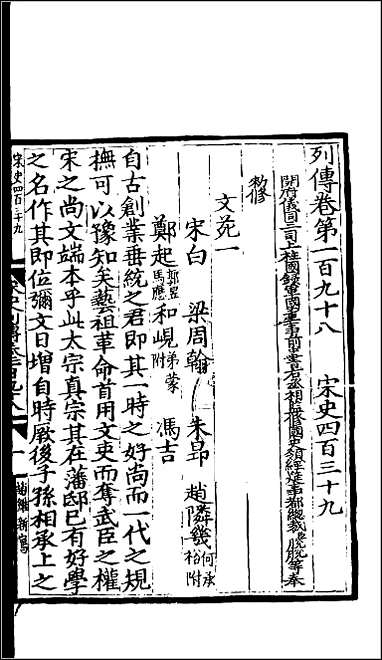 列傳卷第一百九十八　宋史四百三十九
開府儀同三司上柱國錄軍國重事前中書右丞相監修國史領經筵事都總裁臣脫脫等奉
勑修
文苑一
宋白　梁周翰　朱昂　趙隣幾何承裕附
鄭起郭昱馬應和峴弟㠓附　馮吉
自古創業垂統之君即其一時之好尚而一代之規
撫可以豫知矣藝祖革命首用文吏而奪武臣之權
宋之尚文端本乎此太宗真宗其在藩邸已有好學
之名作其即位彌文日增自時厥後子孫相承上之
宋史四百三十九
宋史列傳卷一百九十八
一